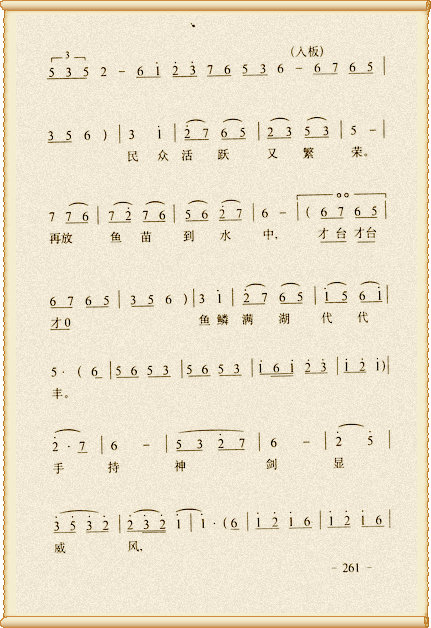 3
(入板)
5 3 5 2 – 6 i 2 3 7 6 5 3 6 – 6 7 6 5 |
3 5 6 ) | 3 i | 2 7 6 5 | 2 3 5 3 | 5 – |
民 众 活 跃 又 繁 荣。
7 7 6 | 7 2 7 6 | 5 6 2 7 | 6 – | ( 6 7 6 5 |
再放 鱼 苗 到 水 中, 才 台 才台
6 7 6 5 | 3 5 6 ) | 3 i | 2 7 6 5 | i 5 6 i |
才 0 鱼 鳞 满 湖 代 代
5 · ( 6 | 5 6 5 3 | 5 6 5 3 | i 6 i 2 3 | i 2 i ) |
丰。
2 · 7 | 6 – | 5 3 2 7 | 6 – | 2 5 |
手 持 神 剑 显
3 5 3 2 | 2 3 2 i | i · ( 6 | i 2 i 6 | i 2 i 6 |
威 风,
– 261 –